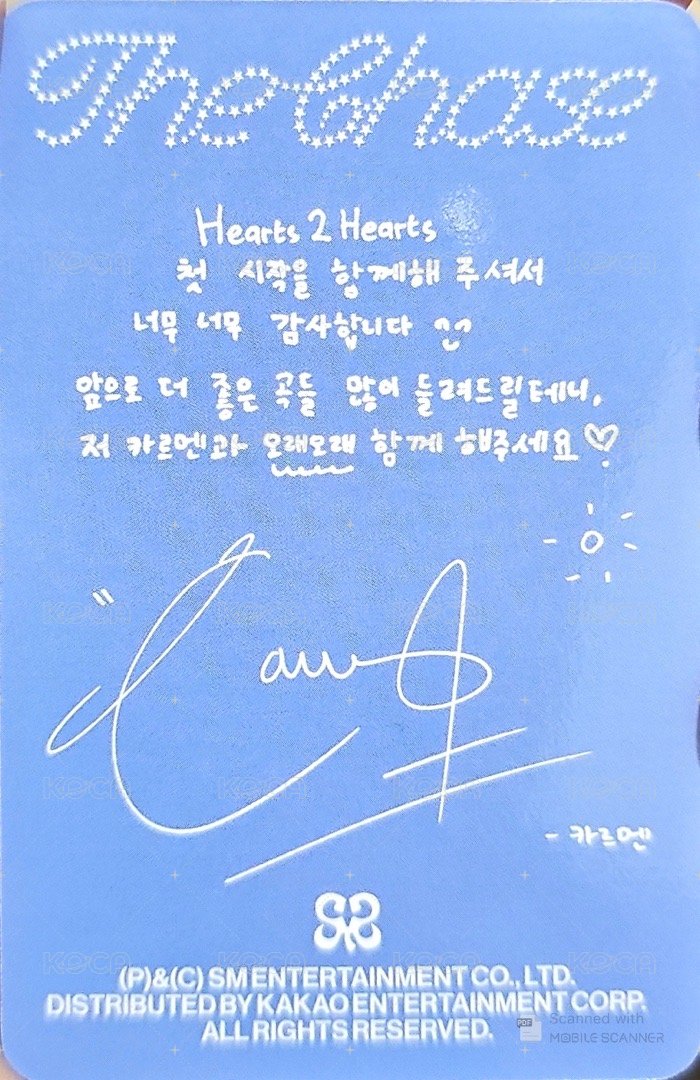 The Chase
Hearts 2 Hearts
첫 시작을 함께해 주셔서
너무 너무 감사합니다
앞으로 더 좋은 곡들 많이 들려드릴테니,
저 카르멘과 오래오래 함께 해주세요♡
- 카르멘
(P)&(C) SM ENTERTAINMENT CO., LTD.
DISTRIBUTED BY KAKAO ENTERTAINMENT CORP.
ALL RIGHTS RESERVED.
PDF Scanned with
MOBILE SCANNER
KOCA